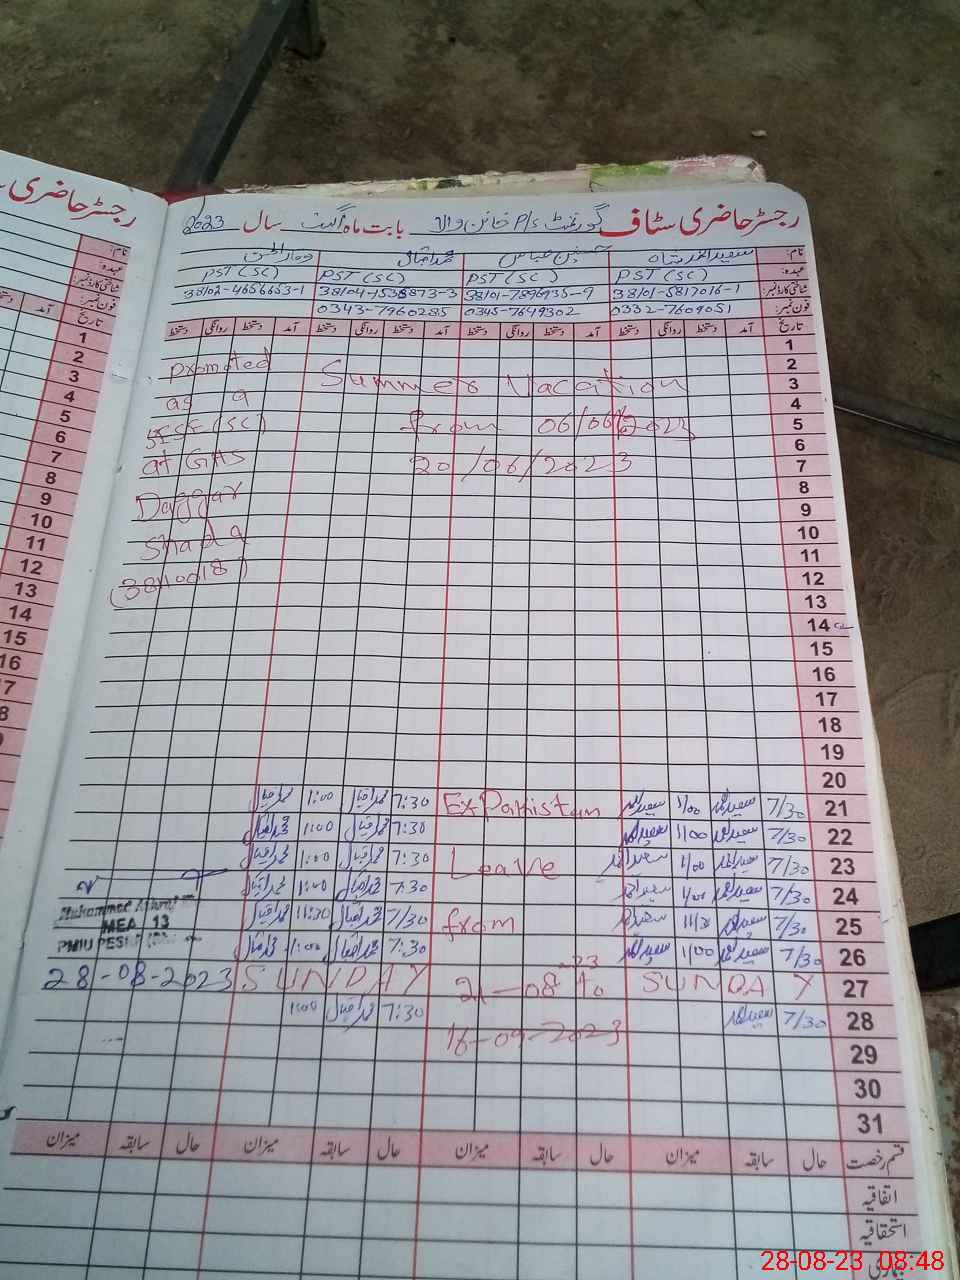 رجسٹر حاضری
رجسٹر حاضری سٹاف گورنمنٹ P/S خانن والا بابت ماہ اگست سال 2023
نام:
عہدہ: PST (SC) PST (SC) PST (SC) PST (SC)
شناختی کارڈ نمبر: 38101-5817016-1 38101-7896935-9 38104-1538873-3 38102-4656653-1
فون نمبر: 0332-7609051 0345-7649302 0343-7960285
تاریخ آمد دستخط روانگی دستخط آمد دستخط روانگی دستخط آمد دستخط روانگی دستخط آمد دستخط روانگی دستخط
1
2 promoted
3 Summer Vacation
4 as a
5 from 06/06/2023
6 SESE (SC)
7 20/06/2023
8 at GHS
9 Daggar
10
11 Shada
12 (38110018)
13
14
15
16
17
18
19
20
21 7/30 سعید احمد 1/00 سعید احمد Ex Pakistan 7:30 محمد اقبال 1:00 محمد اقبال
22 7/30 سعید احمد 1/00 سعید احمد 7:30 محمد اقبال 1:00 محمد اقبال
23 7/30 سعید احمد 1/00 سعید احمد Leave 7:30 محمد اقبال 1:00 محمد اقبال
24 7/30 سعید احمد 1/00 سعید احمد 7:30 محمد اقبال 1:00 محمد اقبال
25 7/30 سعید احمد سعید احمد from 7/30 محمد اقبال 11:30 محمد اقبال
26 7/30 سعید احمد 1/00 سعید احمد 7:30 محمد اقبال 1:00 محمد اقبال
Muhammad
MEA 13
PMIU PESRP
27 SUNDAY 21-08-23 to SUNDAY 28-08-2023
28 7/30 سعید احمد 16-09-2023 7:30 محمد اقبال 1:00
29
30
31
قسم رخصت حال سابقہ میزان حال سابقہ میزان حال سابقہ میزان حال سابقہ میزان
اتفاقیہ
استحقاقیہ
بیماری
28-08-23 08:48